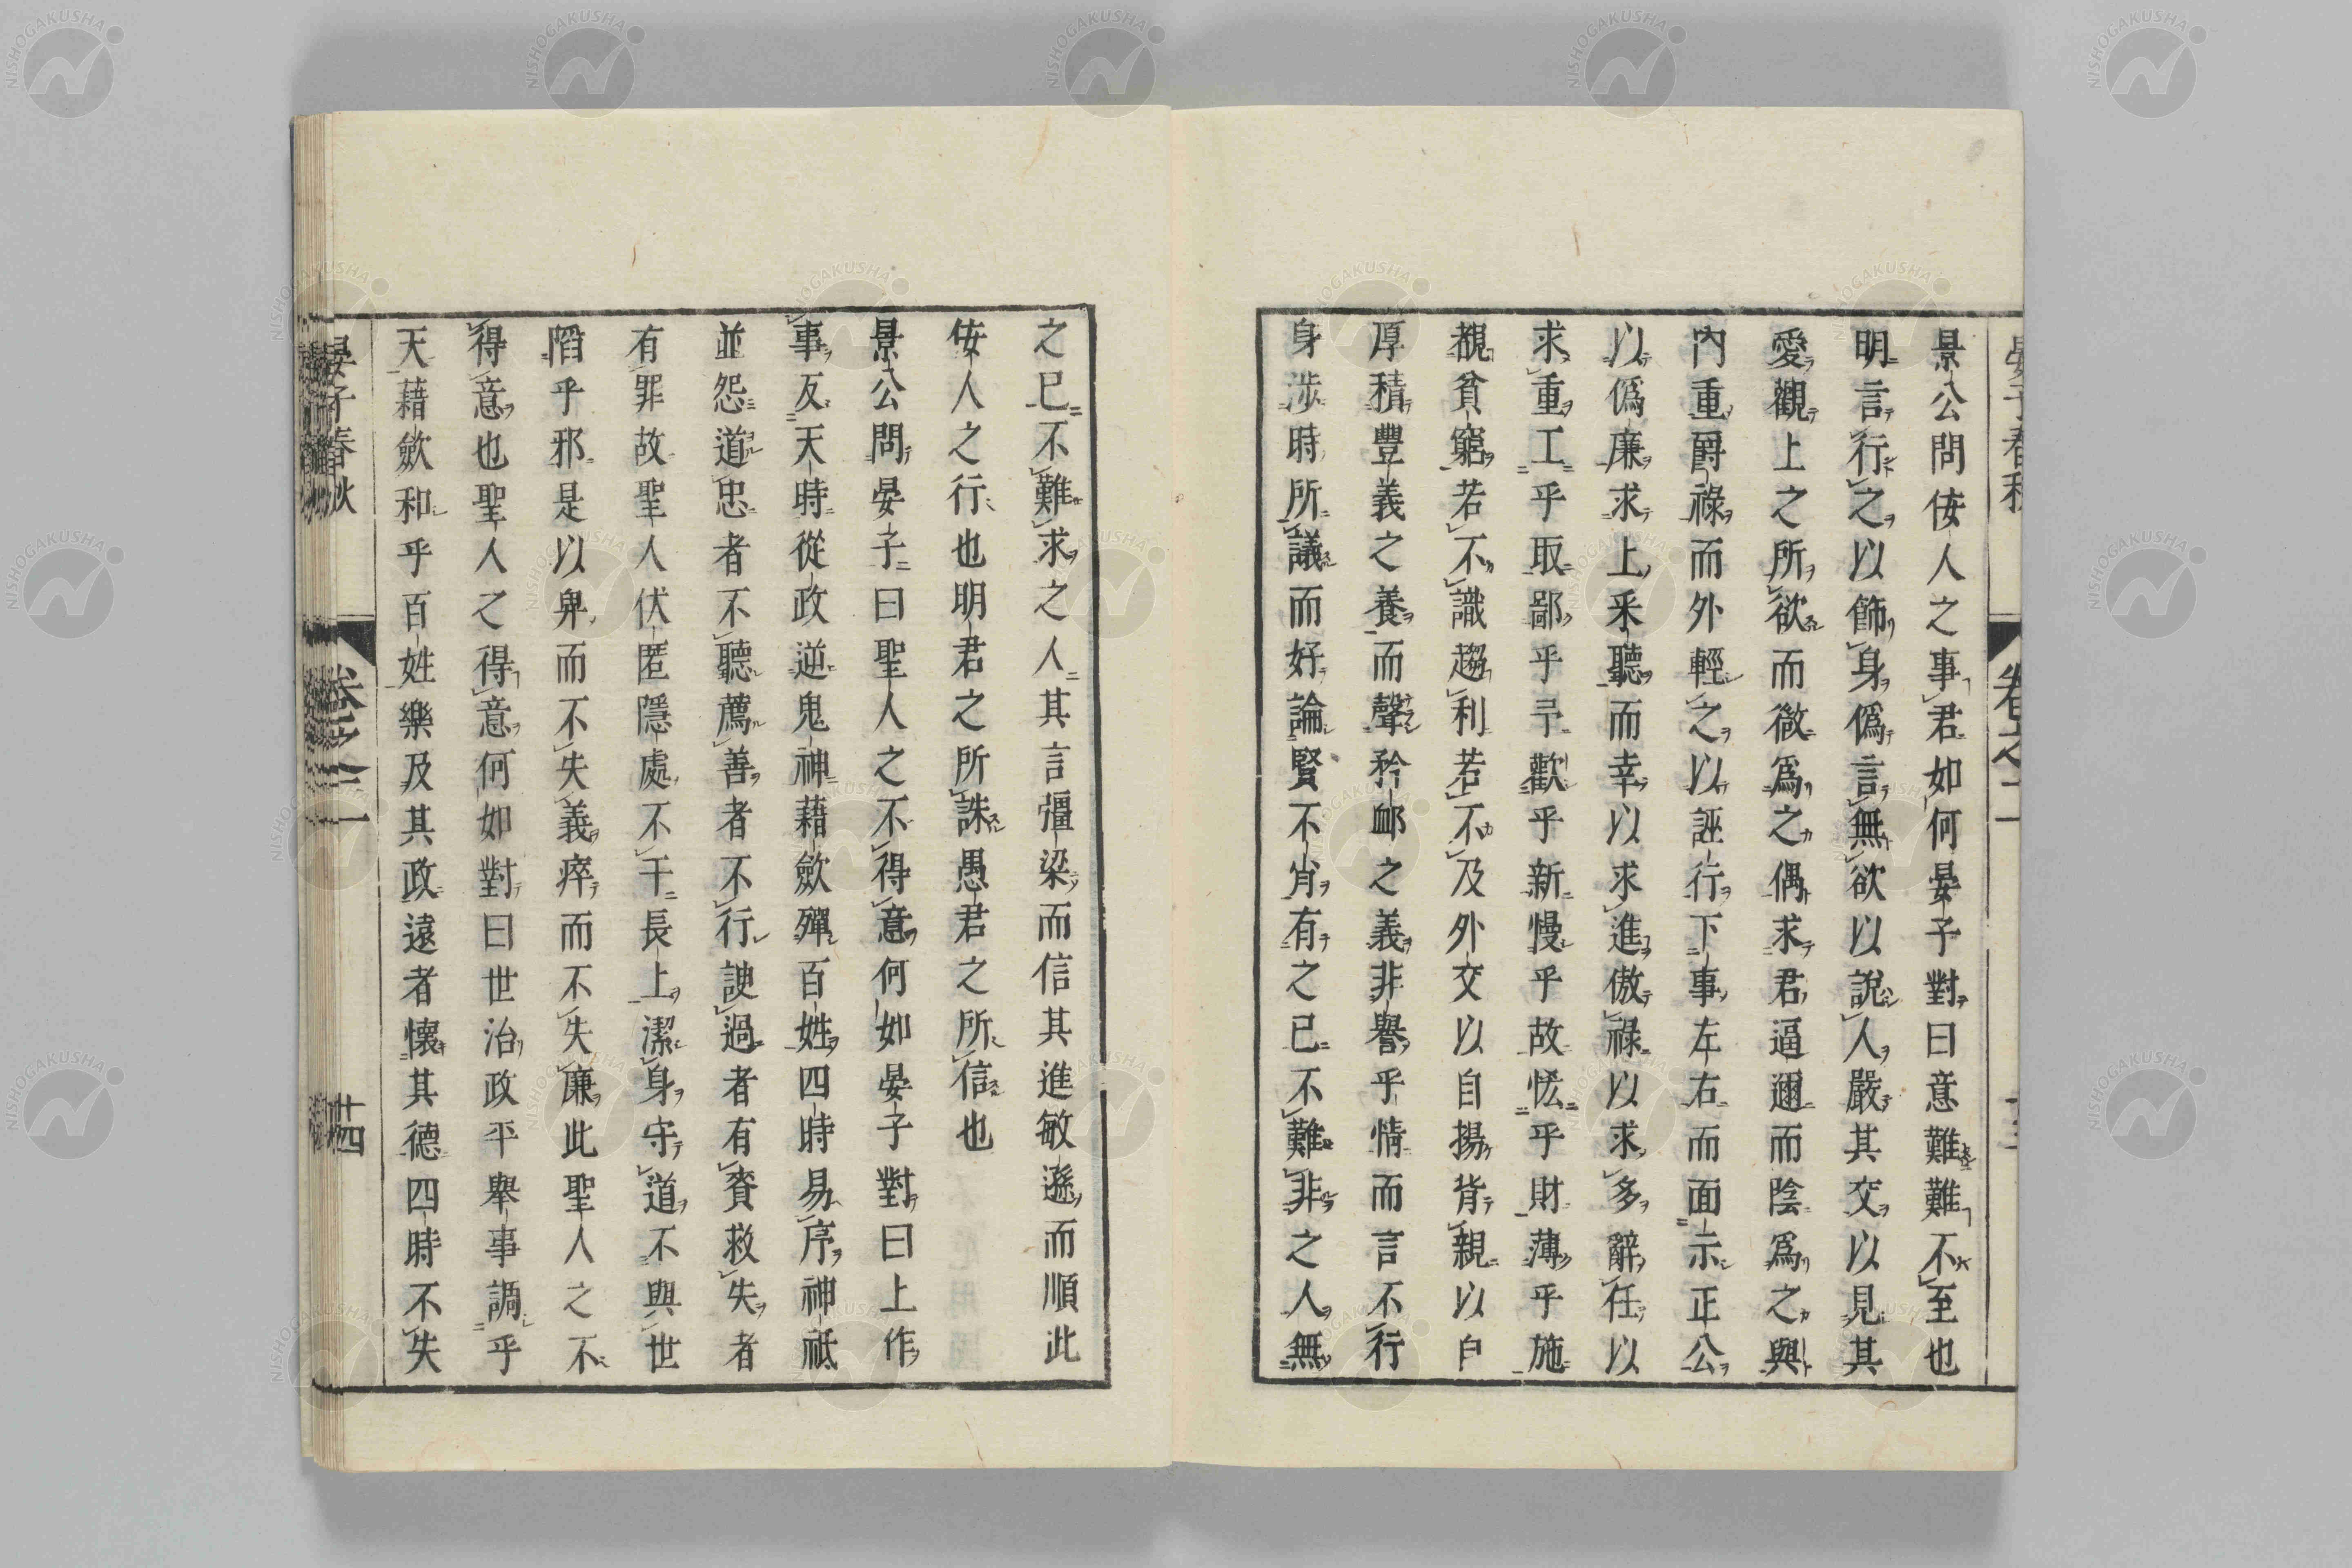 景公問佞人之事君如何晏子對曰意難難不至也
明言行之以飾身僞言無欲以說人嚴其交以見其
愛觀上之所欲而微爲之偶求君逼邇而陰爲之與
內重爵祿而外輕之以誣行下事左右而面示正公
以僞廉求上采聽而幸以求進傲祿以求多辭任以
求重工乎取鄙乎予歡乎新慢乎故恡乎財薄乎施
覩貧窮若不識趨利若不及外交以自揚背親以自
厚積豐義之養而聲矜卹之義非譽乎情而言不行
身涉時所議而好論賢不肖有之己不難非之人無
之己不難求之人其言彊梁而信其進敏遜而順此
佞人之行也明君之所誅愚君之所信也
景公問晏子曰聖人之不得意何如晏子對曰上作
事反天時從政逆鬼神藉歛殫百姓四時易序神祗
並怨道忠者不聽薦善者不行諛過者有賚救失者
有罪故聖人伏匿隱處不干長上潔身守道不與世
陷乎邪是以卑而不失義瘁而不失廉此聖人之不
得意也聖人之得意何如對曰世治政平舉事調乎
天藉歛和乎百姓樂及其政遠者懷其德四時不失
晏子春秋 卷之二 十四
NISHOGAKUSHA